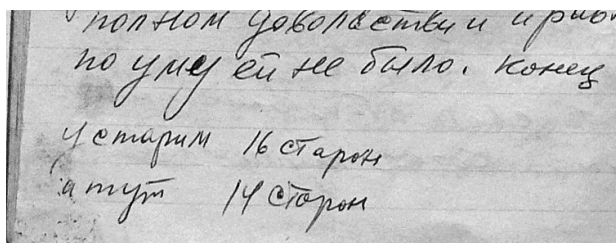 полном доволаствии и
по уму ей не было. конец
у старим 16 старон
а тут 14 сторон